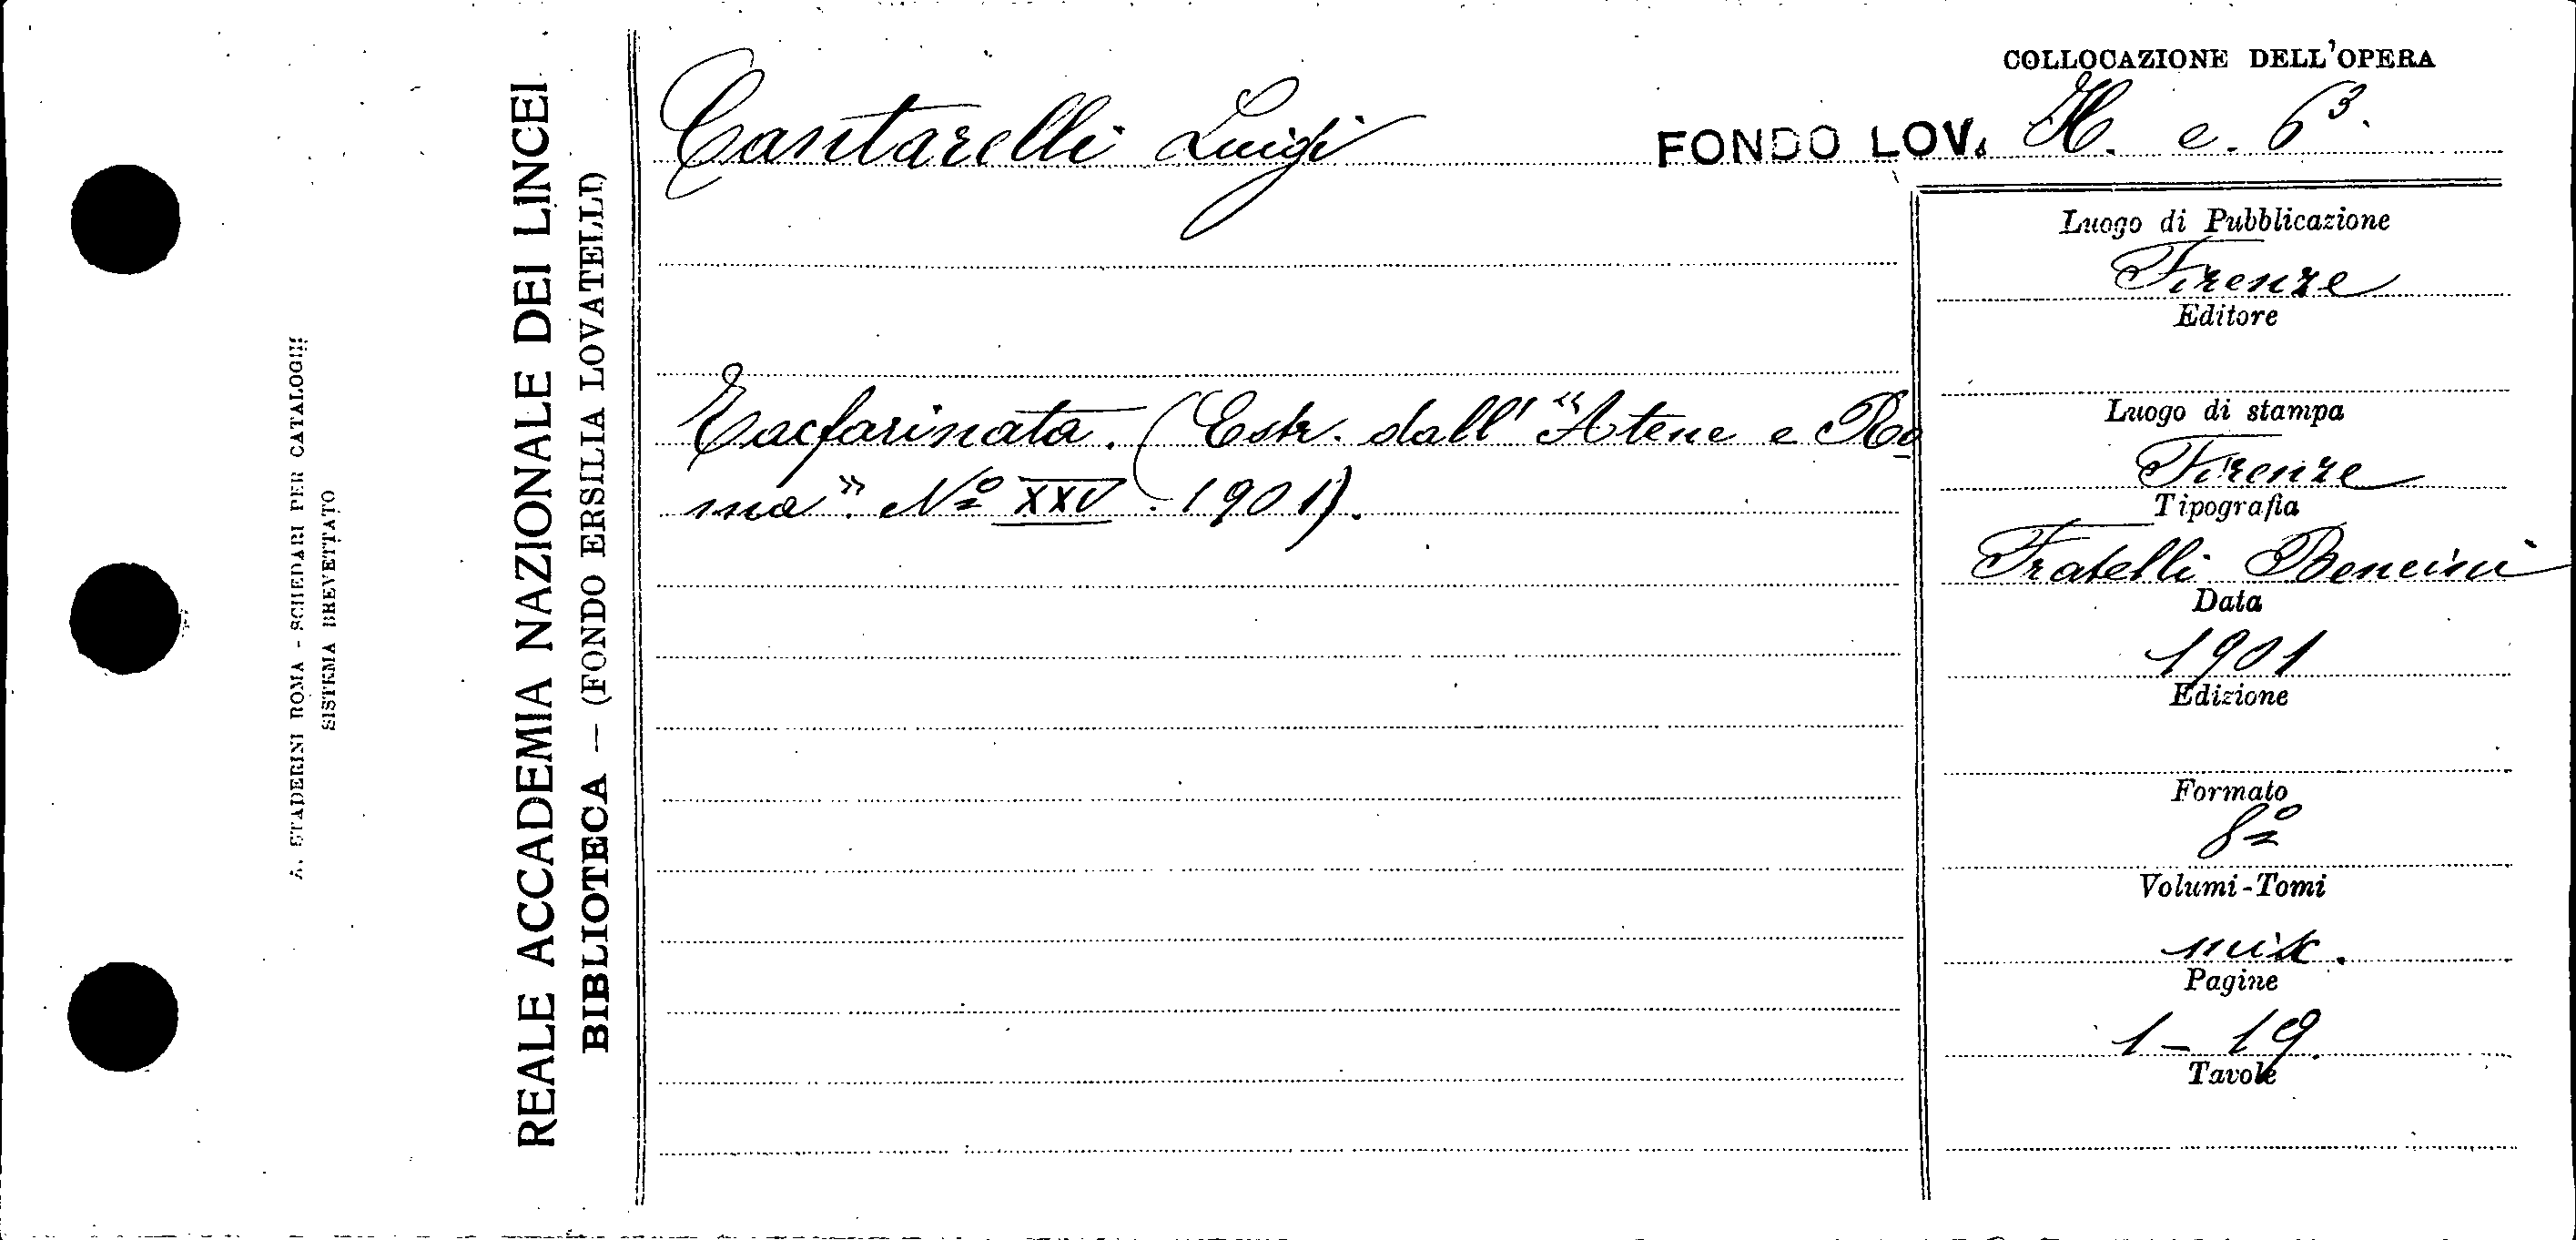 A. STADERINI ROMA - SCHEDARI PER CATALOGHI
SISTEMA BREVETTATO
REALE ACCADEMIA NAZIONALE DEI LINCEI
BIBLIOTECA — (FONDO ERSILIA LOVATELLI)
COLLOCAZIONE DELL'OPERA
Cantarelli Luigi
FONDO LOV. H. e. 6³.
Tacfarinata. (Estr. dall' "Atene e Ro
ma". Nº XXV. 1901).
Luogo di Pubblicazione
Firenze
Editore
Luogo di stampa
Firenze
Tipografia
Fratelli Bencini
Data
1901
Edizione
Formato
8º
Volumi-Tomi
Pagine
1 - 19.
Tavole